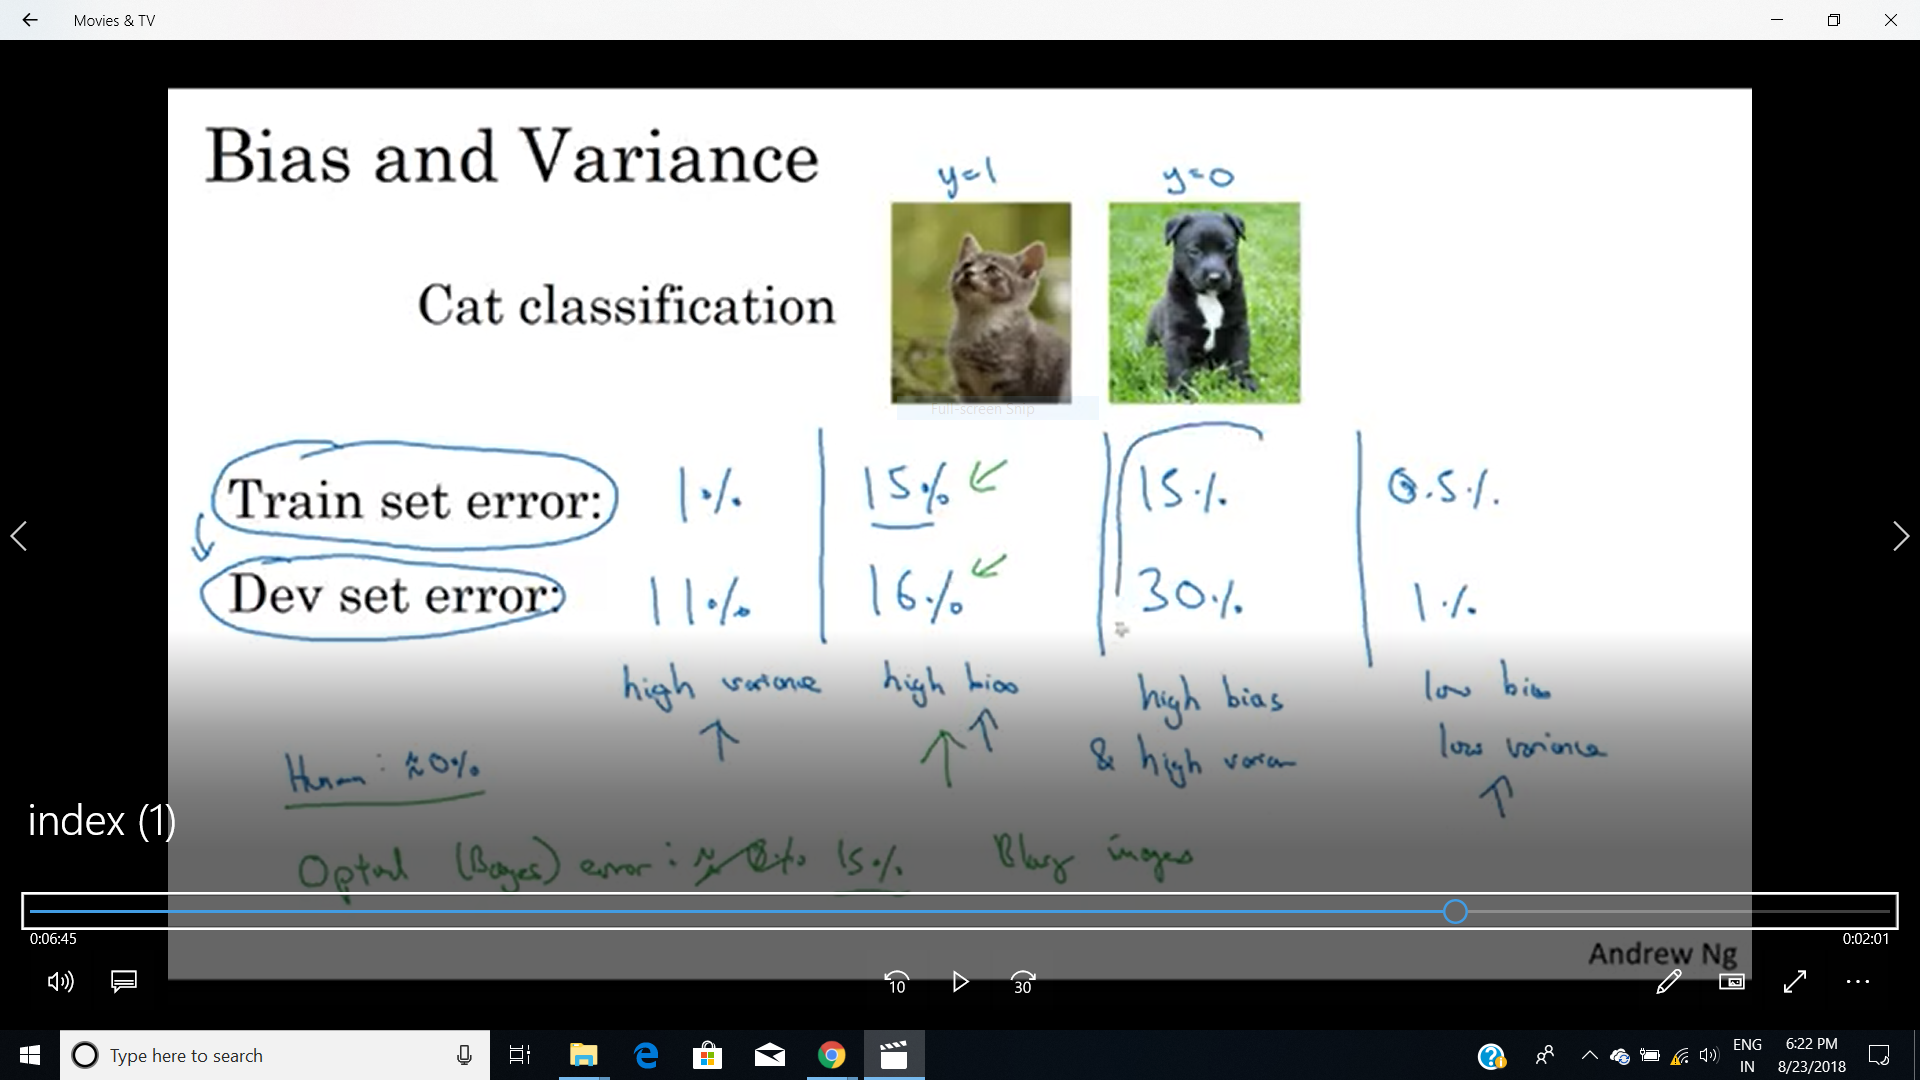 Movies & TV
Bias and Variance
y=1
y=0
Cat classification
Full-screen Snip
Train set error:
1%
15%
15%
0.5%
Dev set error:
11%
16%
30%
1%
high variance
high bias
high bias
& high varian
low bias
low variance
Human: ≈0%
Optimal (Bayes) error: ≈ 0% 15%
Blurry images
index (1)
0:06:45
0:02:01
Andrew Ng
10
30
Type here to search
ENG
IN
6:22 PM
8/23/2018